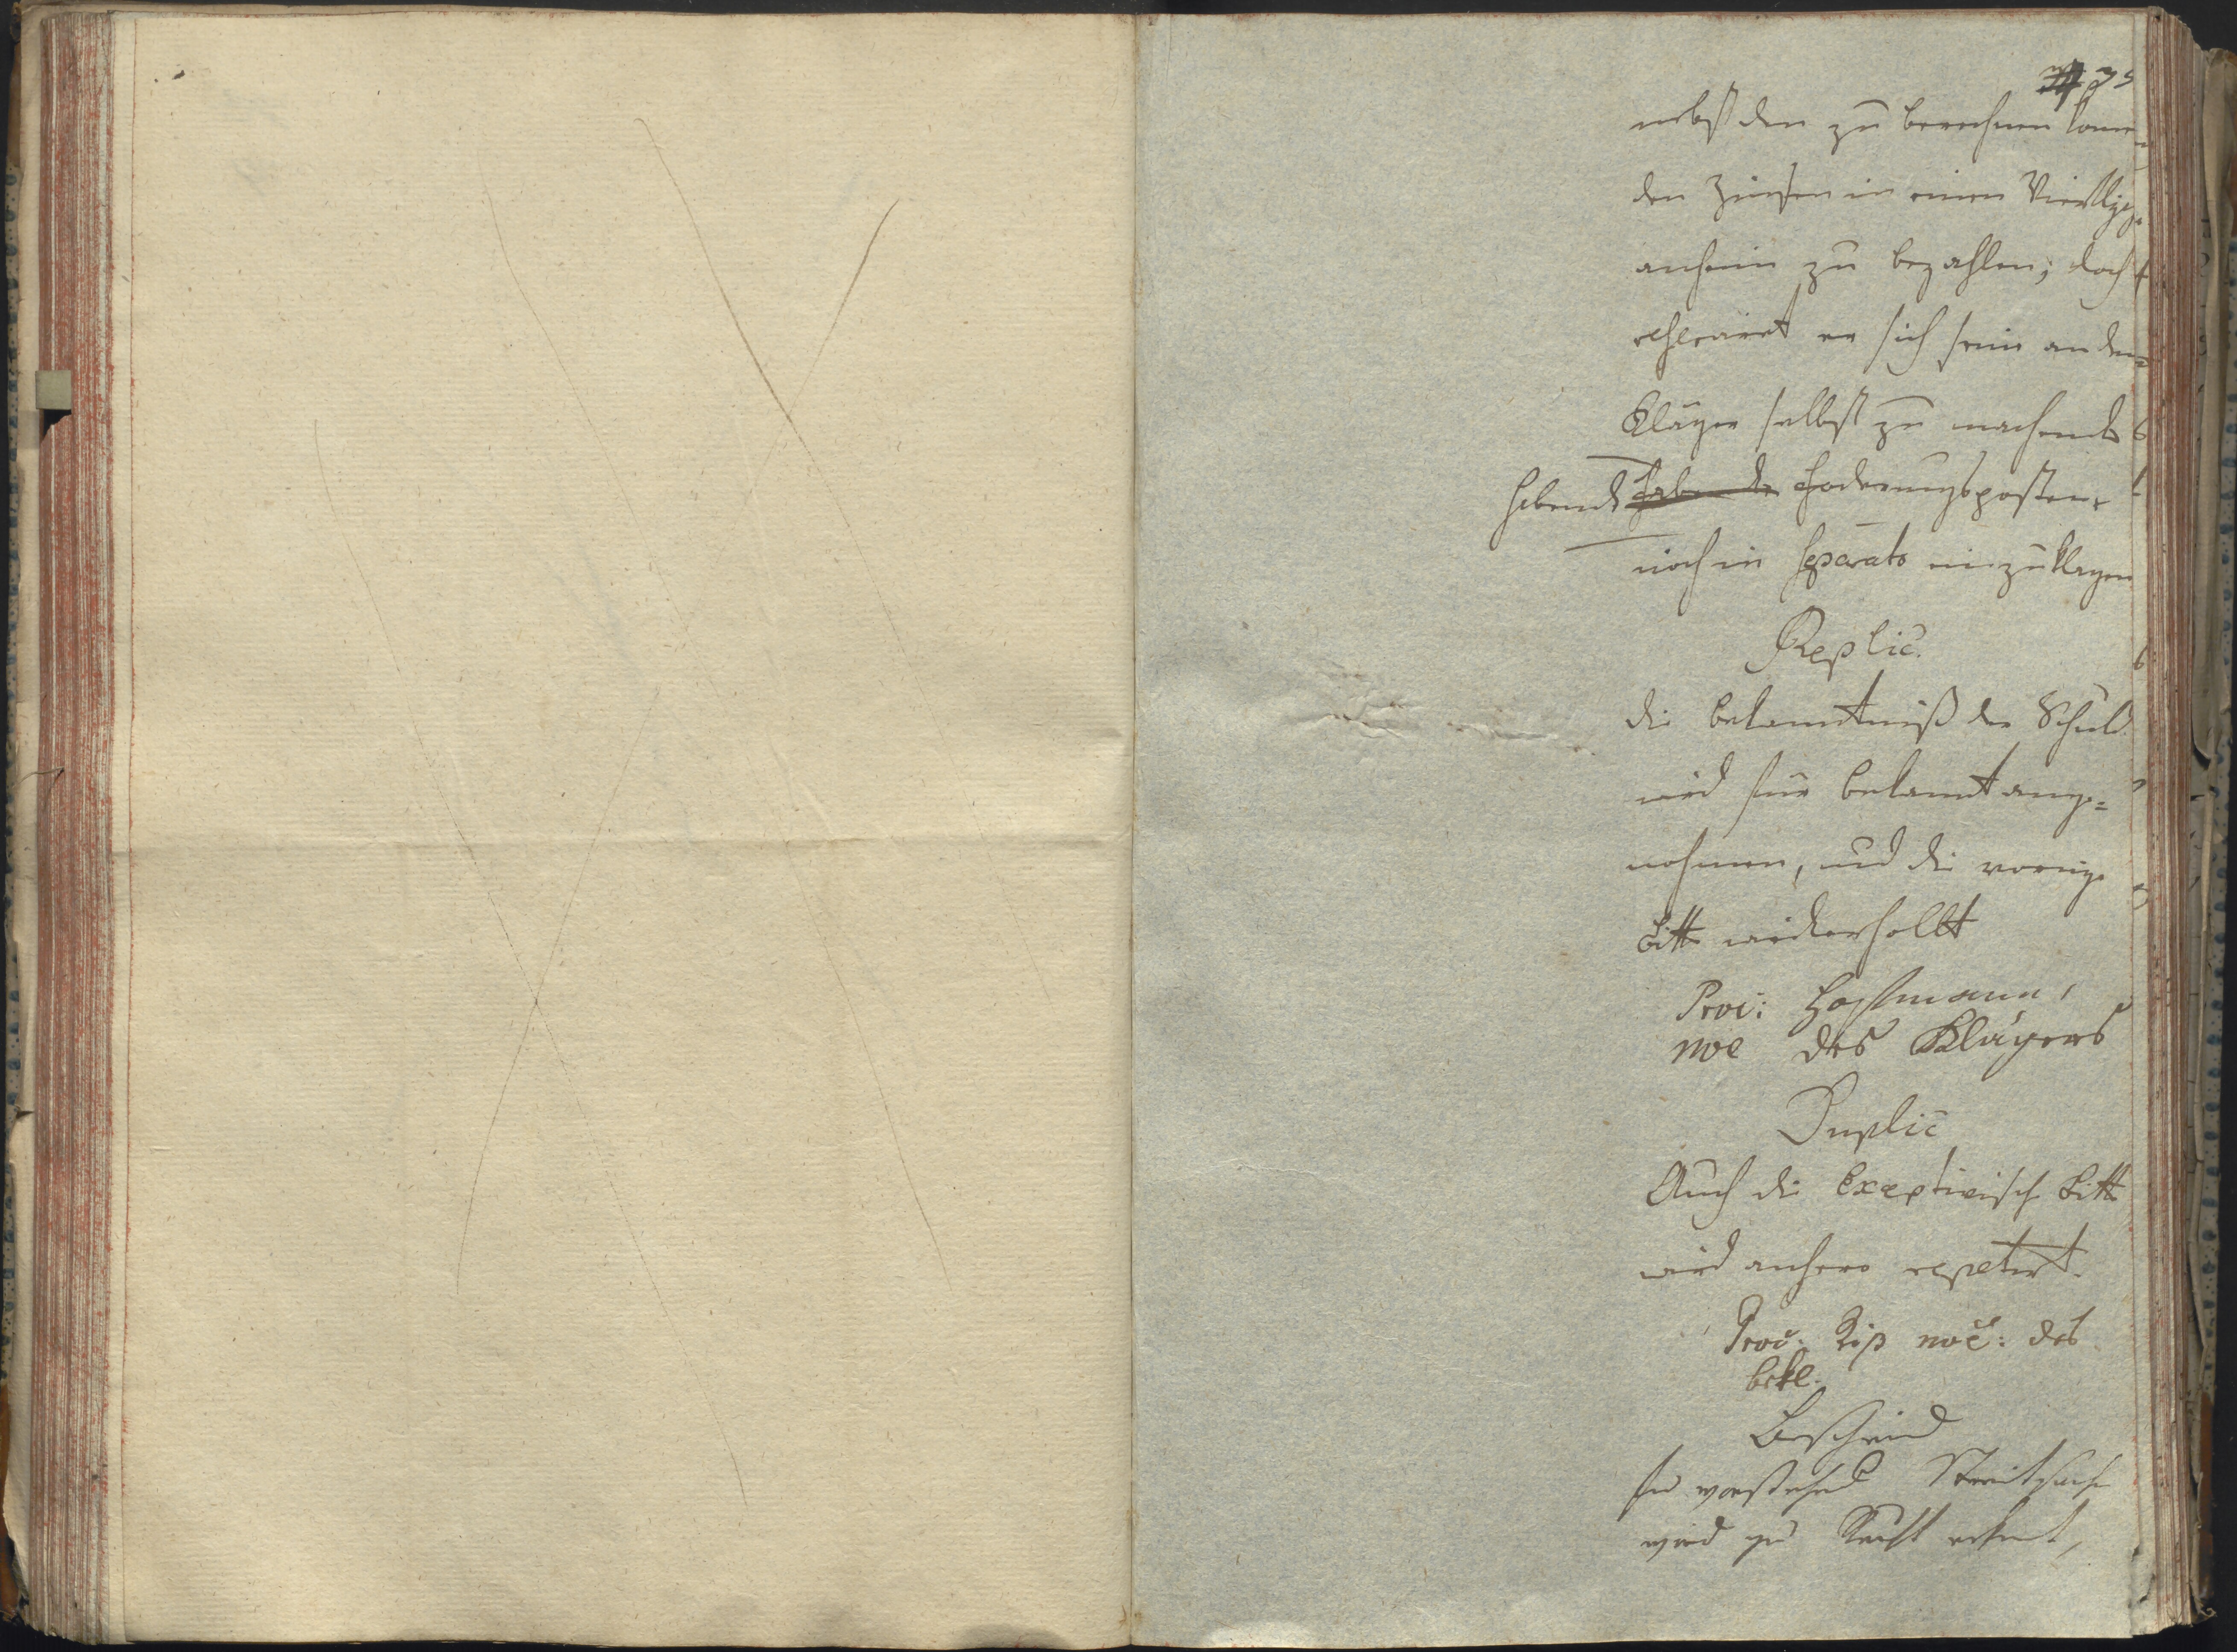 75
nebst den zu berechnen kommen=
den Zinsen in einem Vierteljahr
anhero zu bezahlen; doch
reservirt er sich seine an den
Kläger selbst zu machende
habende habende Foderungsposten
noch in separato einzuklagen
Replic.
die Bekanntniß der Schuld
wird für bekannt ange=
nohmen, und die vorige
Bitte wiederhollt
Proc: Hoffmann,
noe des Klägers
Duplic
Auch die Exceptivische Bitte
wird anhero repetirt.
Proc. Riß noē: des
bekl.
Bescheid
In vorstehend Streitsache
wird zu Recht erkent,